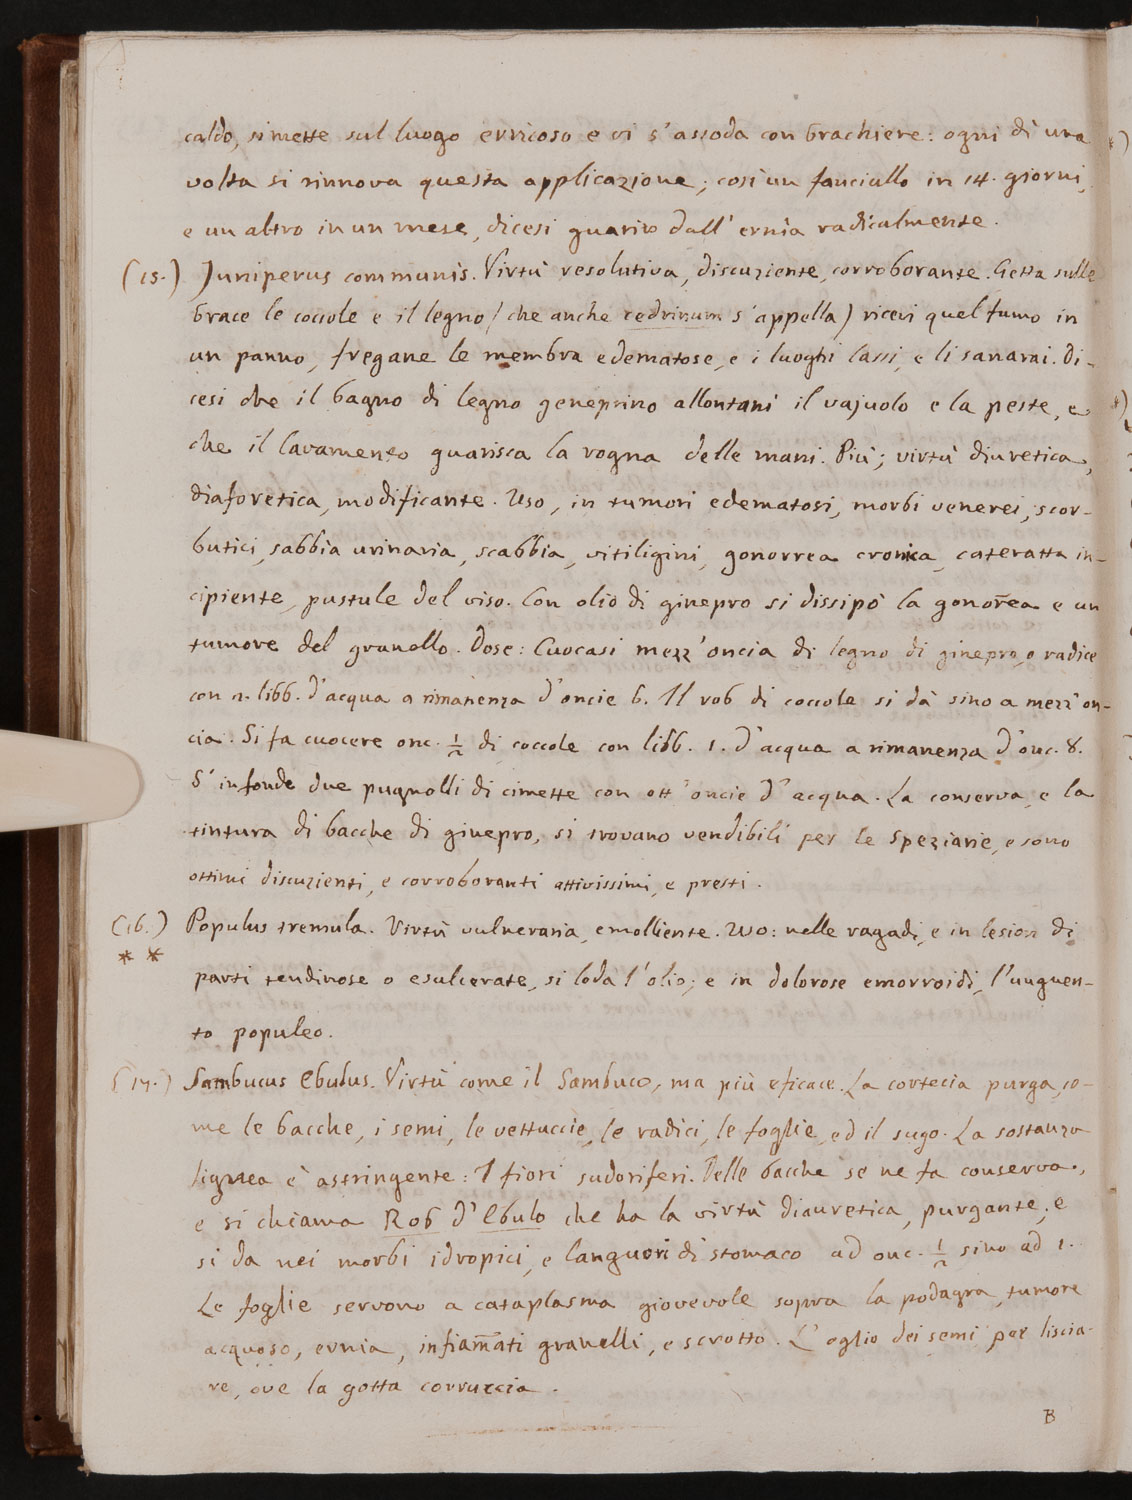 caldo, si mette sul luogo ernioso e vi s'assoda con brachiere: ogni dì una
volta si rinnova questa applicazione; così un fanciullo in 14. giorni,
e un altro in un mese, dicesi guarito dall'ernia radicalmente.
(15.) Juniperus communis. Virtù resolutiva, discuziente, corroborante. Getta sulle
brace le coccole e il legno (che anche cedrinum s'appella) ricevi quel fumo in
un panno, fregane le membra edematose, e i luoghi lassi, e li sanarai. Di-
cesi che il bagno di legno geneprino allontani il vajuolo e la peste, e
che il lavamento guarisca la rogna delle mani. Più; virtù diuretica,
diaforetica, modificante. Uso, in tumori edematosi, morbi venerei, scor-
butici, sabbia urinaria, scabbia, vitiligini, gonorrea cronica, cateratta in-
cipiente, pustule del viso. Con olio di ginepro si dissipò la gonor̃ea e un
tumore del granello. Dose: Cuocasi mezz'oncia di legno di ginepro, o radice
con 2. libb. d'acqua a rimanenza d'oncie 6. Il rob di coccole si dà sino a mezz'on-
cia. Si fa cuocere onc. 1/2 di coccole con libb. 1. d'acqua a rimanenza d'onc. 8.
S'infonde due pugnolli di cimette con ott'oncie d'acqua. La conserva, e la
tintura di bacche di ginepro, si trovano vendibili per le speziarie, e sono
ottimi discuzienti, e corroboranti attivissimi, e presti.
(16.) Populus tremula. Virtù vulneraria, emolliente. Uso: nelle ragadi, e in lesion di
* * parti tendinose o esulcerate, si loda l'olio; e in dolorose emorroidi, l'unguen-
to populeo.
(17.) Sambucus Ebulus. Virtù come il Sambuco, ma più eficace. La cortecia purga, co-
me le bacche, i semi, le vettuccie, le radici, le foglie, ed il sugo. La sostanza
lignea è astringente: I fiori sudoriferi. Delle bacche se ne fa conserva,
e si chiama Rob d'Ebulo che ha la virtù diauretica, purgante; e
si da nei morbi idropici, e languori di stomaco ad onc. 1/2 sino ad 1.
Le foglie servono a cataplasma giovevole sopra la podagra, tumore
acquoso, ernia, infiam̃ati granelli, e scrotto. L'oglio dei semi per liscia-
re, ove la gotta corruccia.
B